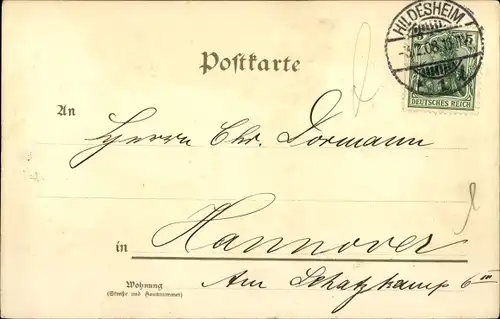 HILDESHEIM
Postkarte
DEUTSCHES REICH
An
Herrn Chr. Dormann
in Hannover
Wohnung
(Straße und Hausnummer)
Am Schatzkamp 6